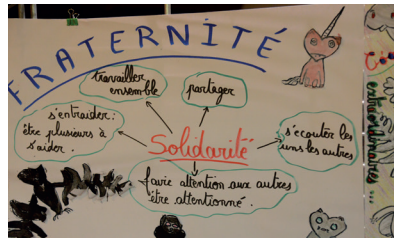 FRATERNITÉ
travailler
ensemble
partager
s'entraider:
être plusieurs à
s'aider.
Solidarité
s'écouter les
uns les autres
faire attention aux autres
être attentionné.
extraordinaires...